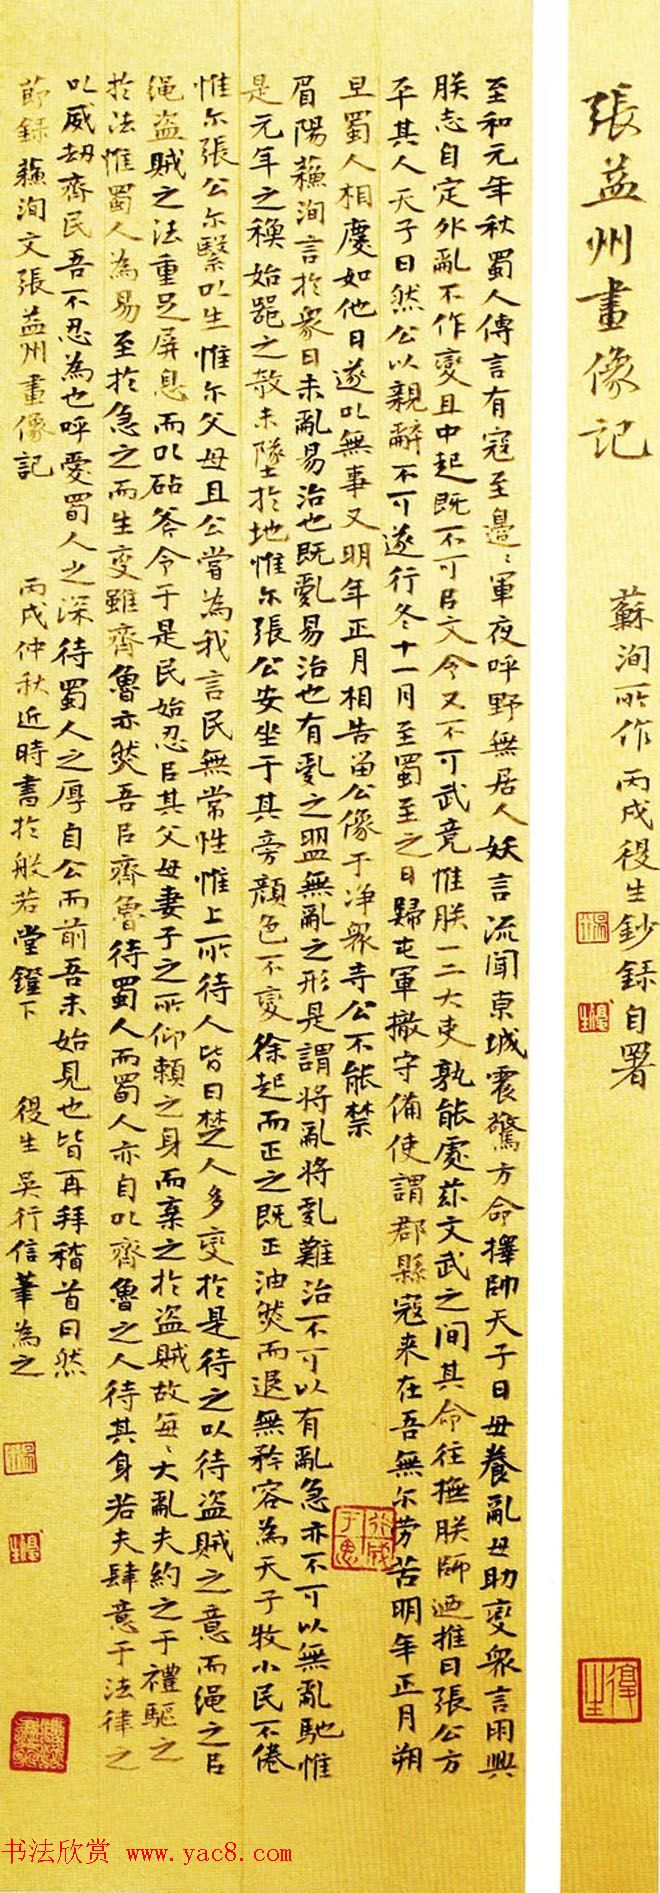 張益州畫像記
蘇洵所作 丙戌復生鈔錄自署
至和元年秋蜀人傳言有寇至邊〻軍夜呼野無居人妖言流聞京城震驚方命擇帥天子曰毋養亂毋助變衆言朋興
朕志自定外亂不作變且中起既不可㠯文令又不可武竟惟朕一二大吏孰能處茲文武之間其命往撫朕師迺推曰張公方
平其人天子曰然公以親辭不可遂行冬十一月至蜀至之日歸屯軍撤守備使謂郡縣寇来在吾無尔勞苦明年正月朔
旦蜀人相慶如他日遂㠯無事又明年正月相告留公像于净衆寺公不能禁
眉陽蘇洵言於衆曰未亂易治也既亂易治也有亂之萌無亂之形是謂將亂將亂難治不可以有亂急亦不可以無亂馳惟
是元年之秋始器之欹未墜於地惟尔張公安坐于其旁顏色不變徐起而正之既正油然而退無矜容為天子牧小民不倦
惟尔張公尔繫㠯生惟尔父母且公嘗為我言民無常性惟上所待人皆曰蜀人多變於是待之以待盜賊之意而绳之㠯
绳盜賊之法重足屏息而㠯砧斧令于是民始忍㠯其父母妻子之所仰賴之身而棄之於盜賊故每〻大亂夫約之于禮驅之
於法惟蜀人為易至於急之而生变雖齊魯亦然吾㠯齊魯待蜀人而蜀人亦自㠯齊魯之人待其身若夫肆意于法律之
㠯威劫齊民吾不忍為也呼愛蜀人之深待蜀人之厚自公而前吾未始見也皆再拜稽首曰然
節錄蘇洵文張益州畫像記 丙戌仲秋近時書於般若堂鐙下 復生吳行信筆為之
復生
书法欣赏 www.yac8.com